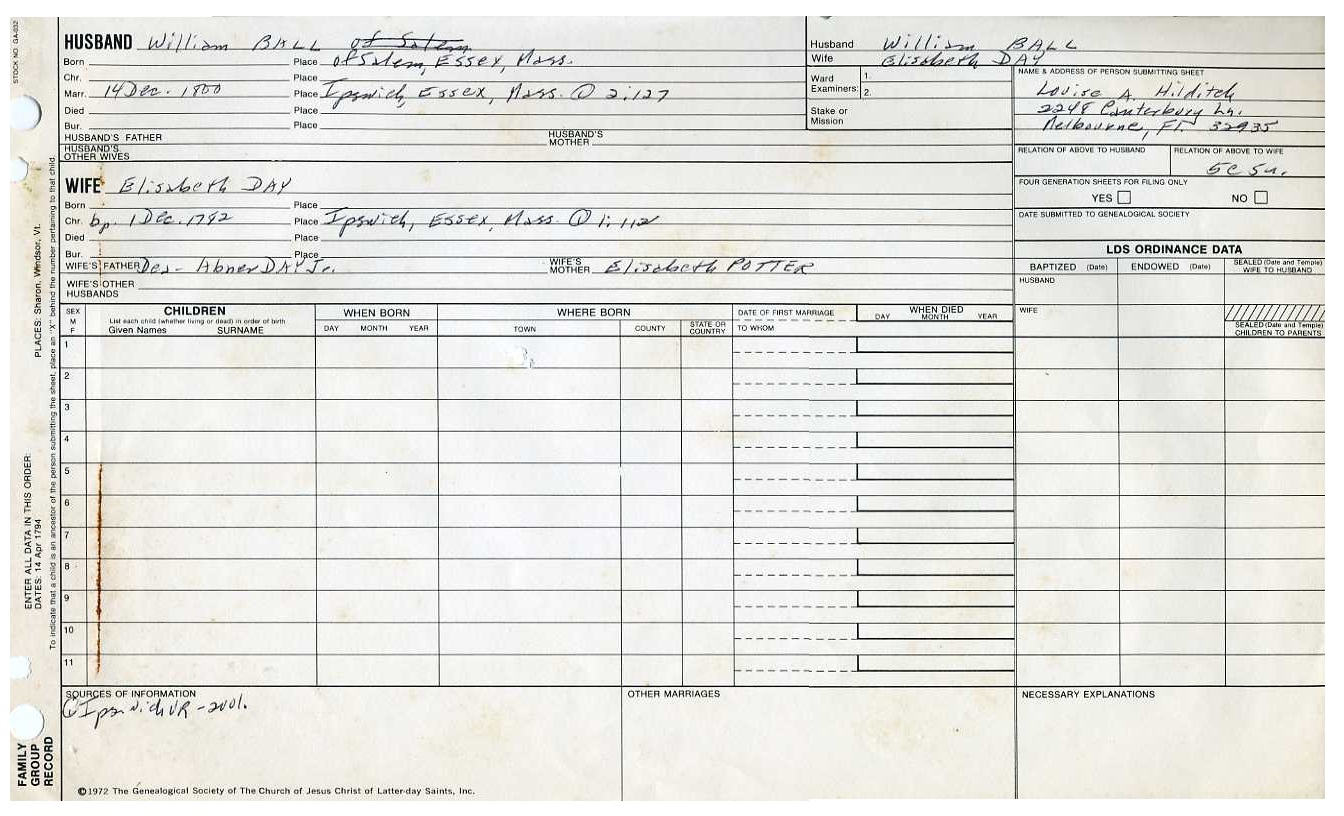 STOCK NO. GA-032
HUSBAND William BALL of Salem
Born Place of Salem, Essex, Mass.
Chr. Place
Marr. 14 Dec. 1800 Place Ipswich, Essex, Mass. ① 2:127
Died Place
Bur. Place
HUSBAND'S FATHER HUSBAND'S MOTHER
HUSBAND'S OTHER WIVES
WIFE Elisabeth DAY
Born Place
Chr. bp. 1 Dec. 1792 Place Ipswich, Essex, Mass. ① 1:112
Died Place
Bur. Place
WIFE'S FATHER Abner DAY Jr. WIFE'S MOTHER Elisabeth POTTER
WIFE'S OTHER HUSBANDS
Husband William BALL
Wife Elisabeth DAY
Ward Examiners: 1.
2.
Stake or Mission
NAME & ADDRESS OF PERSON SUBMITTING SHEET
Louise A. Hilditch
2248 Canterbury Ln.
Melbourne, Fl. 32935
RELATION OF ABOVE TO HUSBAND RELATION OF ABOVE TO WIFE
FOUR GENERATION SHEETS FOR FILING ONLY
YES NO
DATE SUBMITTED TO GENEALOGICAL SOCIETY
LDS ORDINANCE DATA
BAPTIZED (Date) ENDOWED (Date) SEALED (Date and Temple) WIFE TO HUSBAND
HUSBAND
WIFE
SEALED (Date and Temple) CHILDREN TO PARENTS
SEX M F
CHILDREN
List each child (whether living or dead) in order of birth
Given Names SURNAME
WHEN BORN
DAY MONTH YEAR
WHERE BORN
TOWN COUNTY STATE OR COUNTRY
DATE OF FIRST MARRIAGE
TO WHOM
WHEN DIED
DAY MONTH YEAR
1
2
3
4
5
6
7
8
9
10
11
SOURCES OF INFORMATION
① Ipswich VR - 2001.
OTHER MARRIAGES
NECESSARY EXPLANATIONS
©1972 The Genealogical Society of The Church of Jesus Christ of Latter-day Saints, Inc.
FAMILY GROUP RECORD
ENTER ALL DATA IN THIS ORDER:
DATES: 14 Apr 1794
PLACES: Sharon, Windsor, Vt.
To indicate that a child is an ancestor of the person submitting the sheet, place an "X" behind the number pertaining to that child.